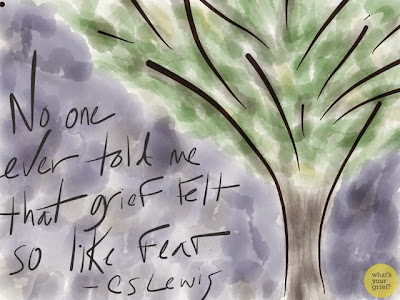 No one
ever told me
that grief felt
so like fear
- CS Lewis
what's
your
grief?